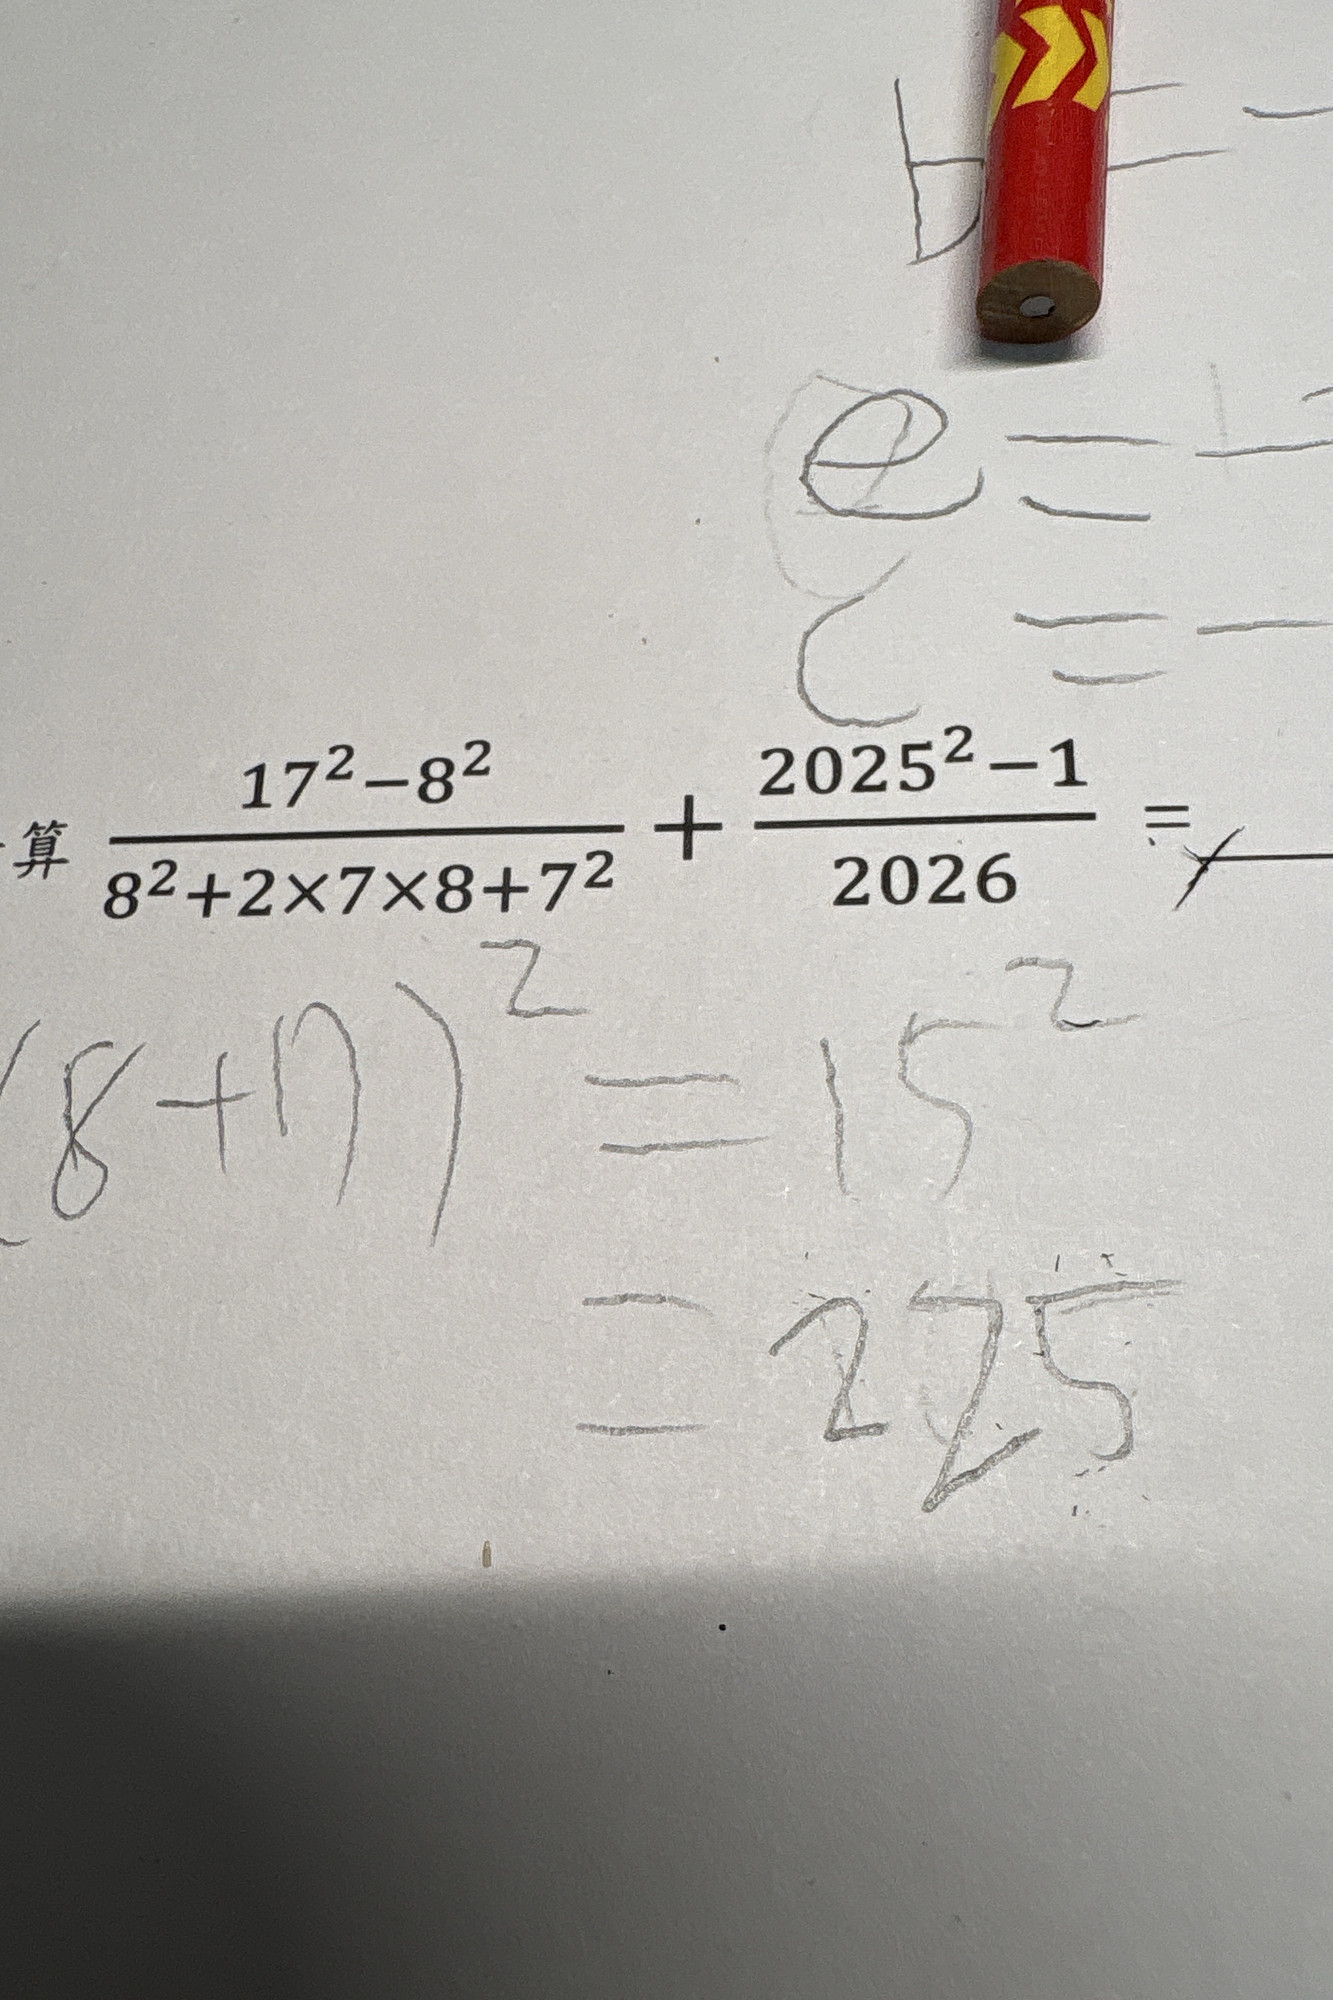 b = -
e = -
c = -
算 \frac{17²-8²}{8²+2×7×8+7²} + \frac{2025²-1}{2026} =
(8+7)² = 15²
= 225